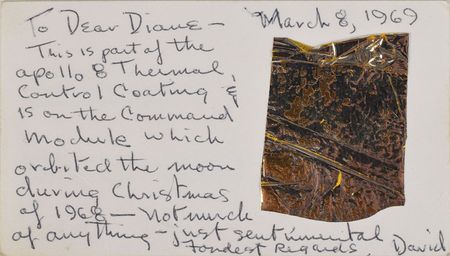 To Dear Diane —
March 8, 1969
This is part of the
apollo 8 Thermal
Control Coating &
is on the Command
Module which
orbited the moon
during Christmas
of 1968 — Not much
of anything — just sentimental
Fondest Regards, David